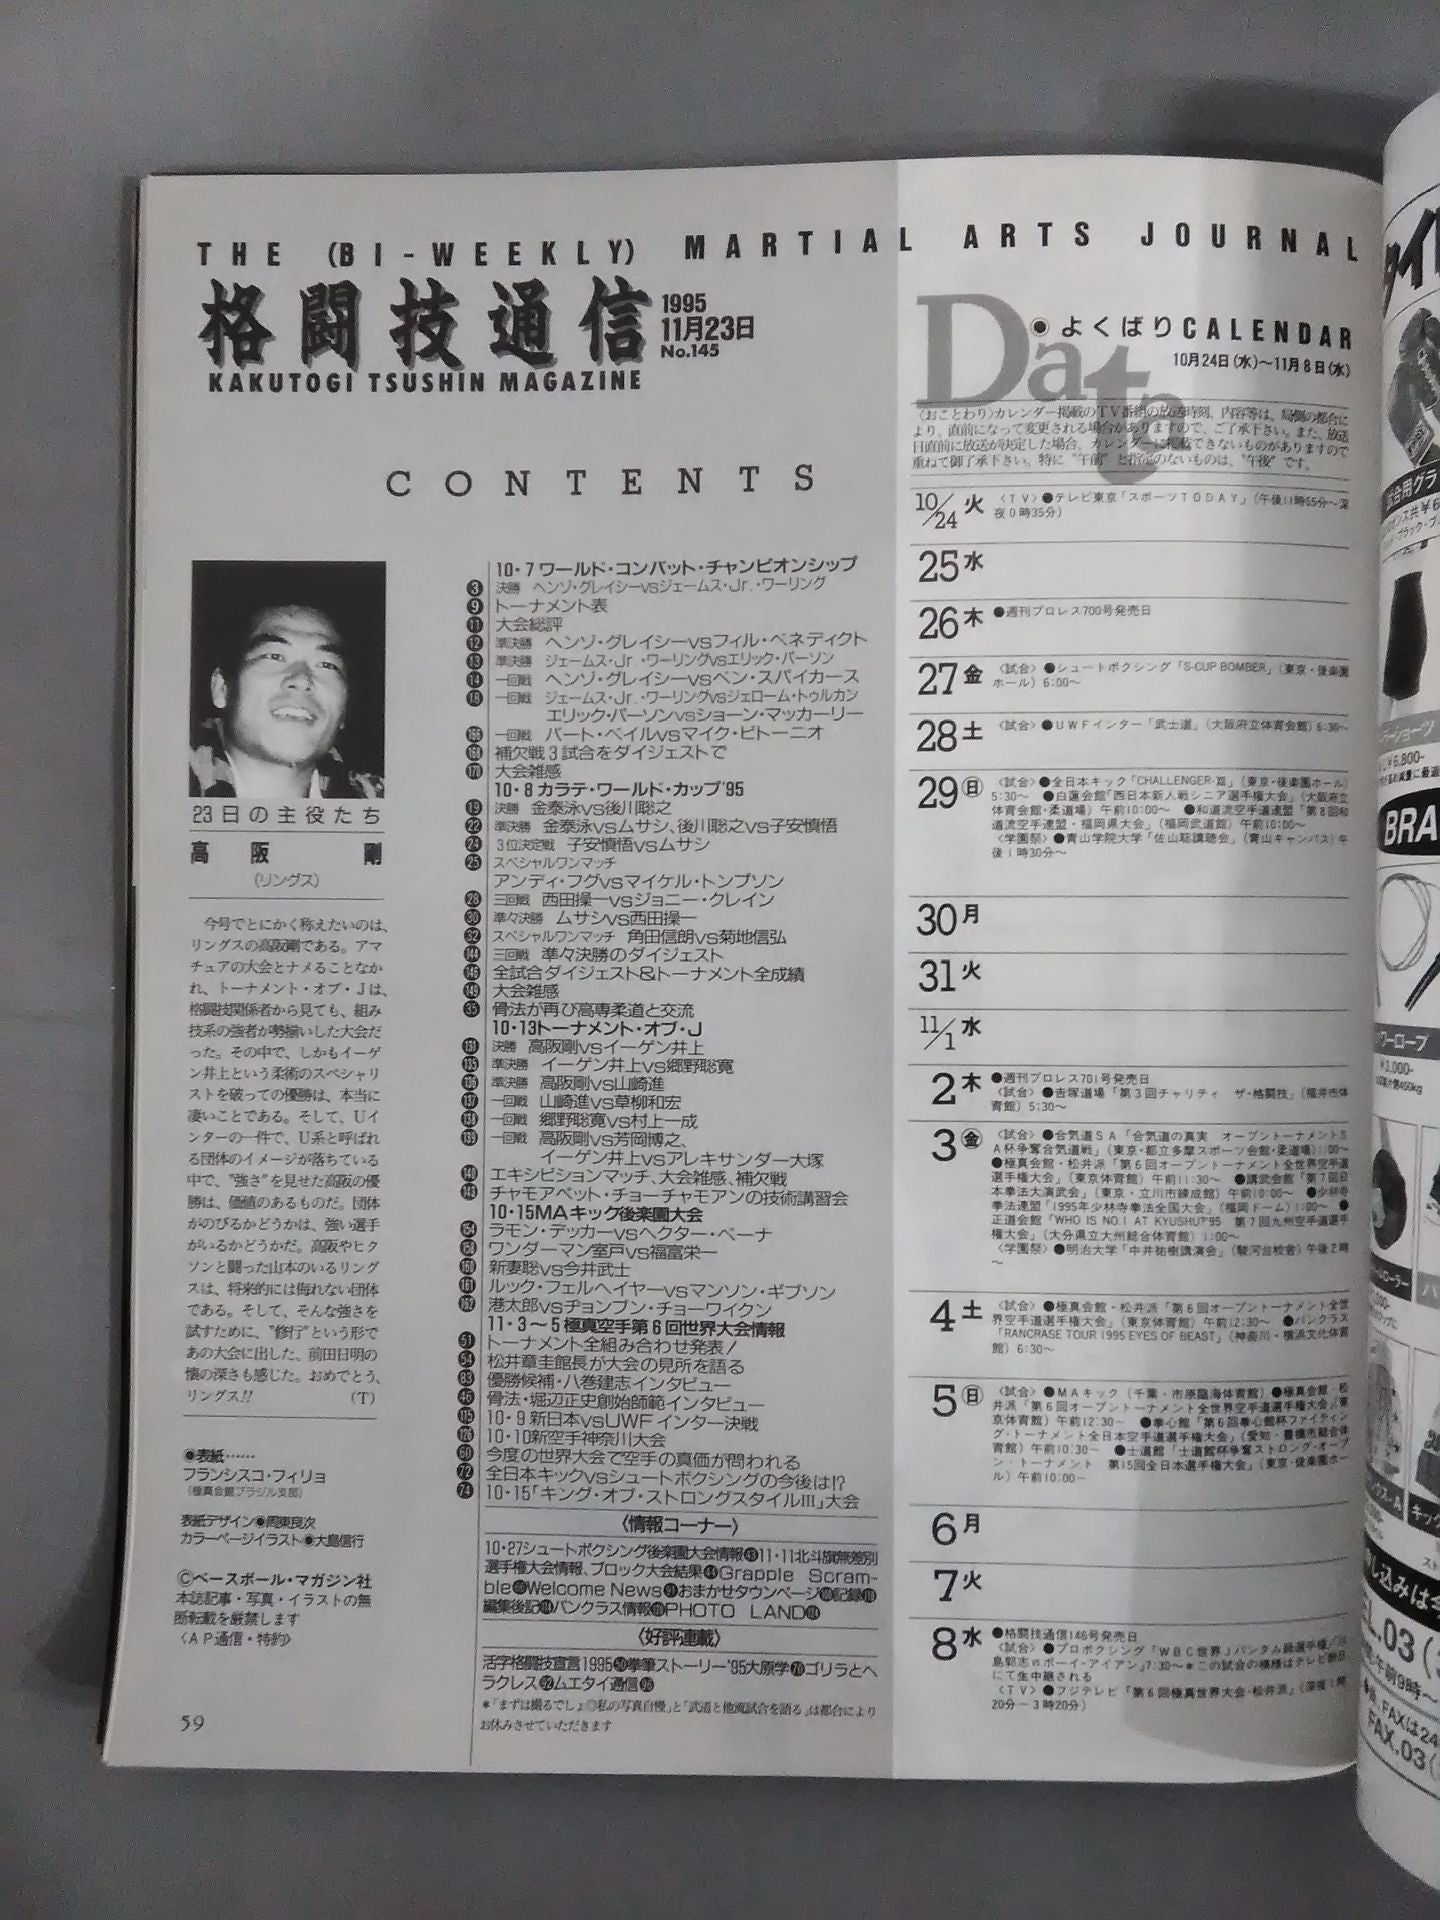 THE (BI-WEEKLY) MARTIAL ARTS JOURNAL
格闘技通信
1995
11月23日
No.145
KAKUTOGI TSUSHIN MAGAZINE
CONTENTS
23日の主役たち
高阪 剛
(リングス)
今号でとにかく称えたいのは、
リングスの高阪剛である。アマ
チュアの大会とナメることなか
れ、トーナメント・オブ・Jは、
格闘技関係者から見ても、組み
技系の強者が勢揃いした大会だ
った。その中で、しかもイーゲ
ン井上という柔術のスペシャリ
ストを破っての優勝は、本当に
凄いことである。そして、Uイ
ンターの一件で、U系と呼ばれ
る団体のイメージが落ちている
中で、“強さ”を見せた高阪の優
勝は、価値のあるものだ。団体
がのびるかどうかは、強い選手
がいるかどうかだ。高阪やヒク
ソンと闘った山本のいるリング
スは、将来的には侮れない団体
である。そして、そんな強さを
試すために、“修行”という形で
あの大会に出した、前田日明の
懐の深さも感じた。おめでとう、
リングス!! (T)
●表紙……
フランシスコ・フィリョ
(極真会館ブラジル支部)
表紙デザイン●周東良次
カラーページイラスト●大島信行
©ベースボール・マガジン社
本誌記事・写真・イラストの無
断転載を厳禁します
〈AP通信・特約〉
59
10・7ワールド・コンバット・チャンピオンシップ
3 決勝 ヘンゾ・グレイシーvsジェームス・Jr.・ワーリング
9 トーナメント表
11 大会総評
12 準決勝 ヘンゾ・グレイシーvsフィル・ベネディクト
13 準決勝 ジェームス・Jr.・ワーリングvsエリック・パーソン
14 一回戦 ヘンゾ・グレイシーvsベン・スパイカース
18 一回戦 ジェームス・Jr.・ワーリングvsジェローム・トゥルカン
エリック・パーソンvsショーン・マッカーリー
166 一回戦 バート・ベイルvsマイク・ビトーニオ
168 補欠戦3試合をダイジェストで
170 大会雑感
10・8カラテ・ワールド・カップ'95
19 決勝 金泰泳vs後川聡之
22 準決勝 金泰泳vsムサシ、後川聡之vs子安慎悟
24 3位決定戦 子安慎悟vsムサシ
25 スペシャルワンマッチ
アンディ・フグvsマイケル・トンプソン
28 三回戦 西田操一vsジョニー・クレイン
30 準々決勝 ムサシvs西田操一
32 スペシャルワンマッチ 角田信朗vs菊地信弘
144 三回戦 準々決勝のダイジェスト
146 全試合ダイジェスト&トーナメント全成績
149 大会雑感
35 骨法が再び高専柔道と交流
10・13トーナメント・オブ・J
131 決勝 高阪剛vsイーゲン井上
135 準決勝 イーゲン井上vs郷野聡寛
136 準決勝 高阪剛vs山崎進
137 一回戦 山崎進vs草柳和宏
138 一回戦 郷野聡寛vs村上一成
139 一回戦 高阪剛vs芳岡博之、
イーゲン井上vsアレキサンダー大塚
140 エキシビションマッチ、大会雑感、補欠戦
143 チャモアペット・チョーチャモアンの技術講習会
10・15MAキック後楽園大会
154 ラモン・デッカーvsヘクター・ペーナ
158 ワンダーマン室戸vs福富栄一
160 新妻聡vs今井武士
161 ルック・フェルヘイヤーvsマンソン・ギブソン
162 港太郎vsチョンブン・チョーワイクン
11・3~5極真空手第6回世界大会情報
51 トーナメント全組み合わせ発表!
54 松井章圭館長が大会の見所を語る
83 優勝候補・八巻建志インタビュー
46 骨法・堀辺正史創始師範インタビュー
115 10・9新日本vsUWFインター決戦
126 10・10新空手神奈川大会
60 今度の世界大会で空手の真価が問われる
72 全日本キックvsシュートボクシングの今後は!?
74 10・15「キング・オブ・ストロングスタイルIII」大会
〈情報コーナー〉
10・27シュートボクシング後楽園大会情報43 11・11北斗旗無差別
選手権大会情報、ブロック大会結果44 Grapple Scram-
ble Welcome News おまかせタウンページ 記録
編集後記 パンクラス情報 PHOTO LAND
〈好評連載〉
活字格闘技宣言1995 拳筆ストーリー'95大原学70 ゴリラとヘ
ラクレス92 ムエタイ通信96
*「まずは撮るでしょ◎私の写真自慢」と「武道と他流試合を語る」は都合により
お休みさせていただきます
Date
●よくばりCALENDAR
10月24日(水)~11月8日(水)
〈おことわり〉カレンダー掲載のTV番組の放送時刻、内容等は、局側の都合に
より、直前になって変更される場合がありますので、ご了承下さい。また、放送
日直前に放送が決定した場合、カレンダーに掲載できないものがありますので
重ねて御了承下さい。特に“午前”と指定のないものは、“午後”です。
10/24 火 〈TV〉●テレビ東京「スポーツTODAY」(午後11時55分~深
夜0時35分)
25 水
26 木 ●週刊プロレス700号発売日
27 金 〈試合〉●シュートボクシング「S-CUP BOMBER」(東京・後楽園
ホール) 6:00~
28 土 〈試合〉●UWFインター「武士道」(大阪府立体育会館) 6:30~
29 日 〈試合〉●全日本キック「CHALLENGER-Ⅶ」(東京・後楽園ホール)
5:30~ ●白蓮会館「西日本新人戦シニア選手権大会」(大阪府立
体育会館・柔道場) 午前10:00~ ●和道流空手道連盟「第8回和
道流空手道連盟・福岡県大会」(福岡武道館) 午前10:00~
〈学園祭〉●青山学院大学「佐山聡講聴会」(青山キャンパス) 午
後1時30分~
30 月
31 火
11/1 水
2 木 ●週刊プロレス701号発売日
〈試合〉●吉塚道場「第3回チャリティ ザ・格闘技」(福井市体
育館) 5:30~
3 金 〈試合〉●合気道SA「合気道の真実 オープントーナメントS
A杯争奪合気道戦」(東京・都立多摩スポーツ会館・柔道場)1:00~
●極真会館・松井派「第6回オープントーナメント全世界空手道
選手権大会」(東京体育館) 午前11:30~ ●講武会館「第7回日
本拳法大演武会」(東京・立川市練成館) 午前10:00~ ●少林寺
拳法連盟「1995年少林寺拳法全国大会」(福岡ドーム) 1:00~ ●
正道会館「WHO IS NO.1 AT KYUSHU?'95 第7回九州空手道選手
権大会」(大分県立大州総合体育館) 1:00~
〈学園祭〉●明治大学「中井祐樹講演会」(駿河台校舎) 午後2時
~
4 土 〈試合〉●極真会館・松井派「第6回オープントーナメント全世
界空手道選手権大会」(東京体育館) 午前12:30~ ●パンクラス
「RANCRASE TOUR 1995 EYES OF BEAST」(神奈川・横浜文化体育
館) 6:30~
5 日 〈試合〉●MAキック (千葉・市原臨海体育館) ●極真会館・松
井派「第6回オープントーナメント全世界空手道選手権大会」(東
京体育館) 午前12:30~ ●拳心館「第6回拳心館杯ファイティン
グ・トーナメント全日本空手道選手権大会」(愛知・豊橋市総合体
育館) 午前10:30~ ●士道館「士道館杯争奪ストロング・オープ
ン・トーナメント 第15回全日本選手権大会」(東京・後楽園ホー
ル) 午前10:00~
6 月
7 火
8 水 ●格闘技通信146号発売日
〈試合〉●プロボクシング「WBC世界Jバンタム級選手権/川
島郭志vsボーイ・アイアン」7:30~*この試合の模様はテレビ朝日
にて生中継される
〈TV〉●フジテレビ「第6回極真世界大会・松井派」(深夜1時
20分~3時20分)
試合用グラ
¥6,800-
BRA
ワーロープ
¥3,000-
し込みは今
FAX.03(